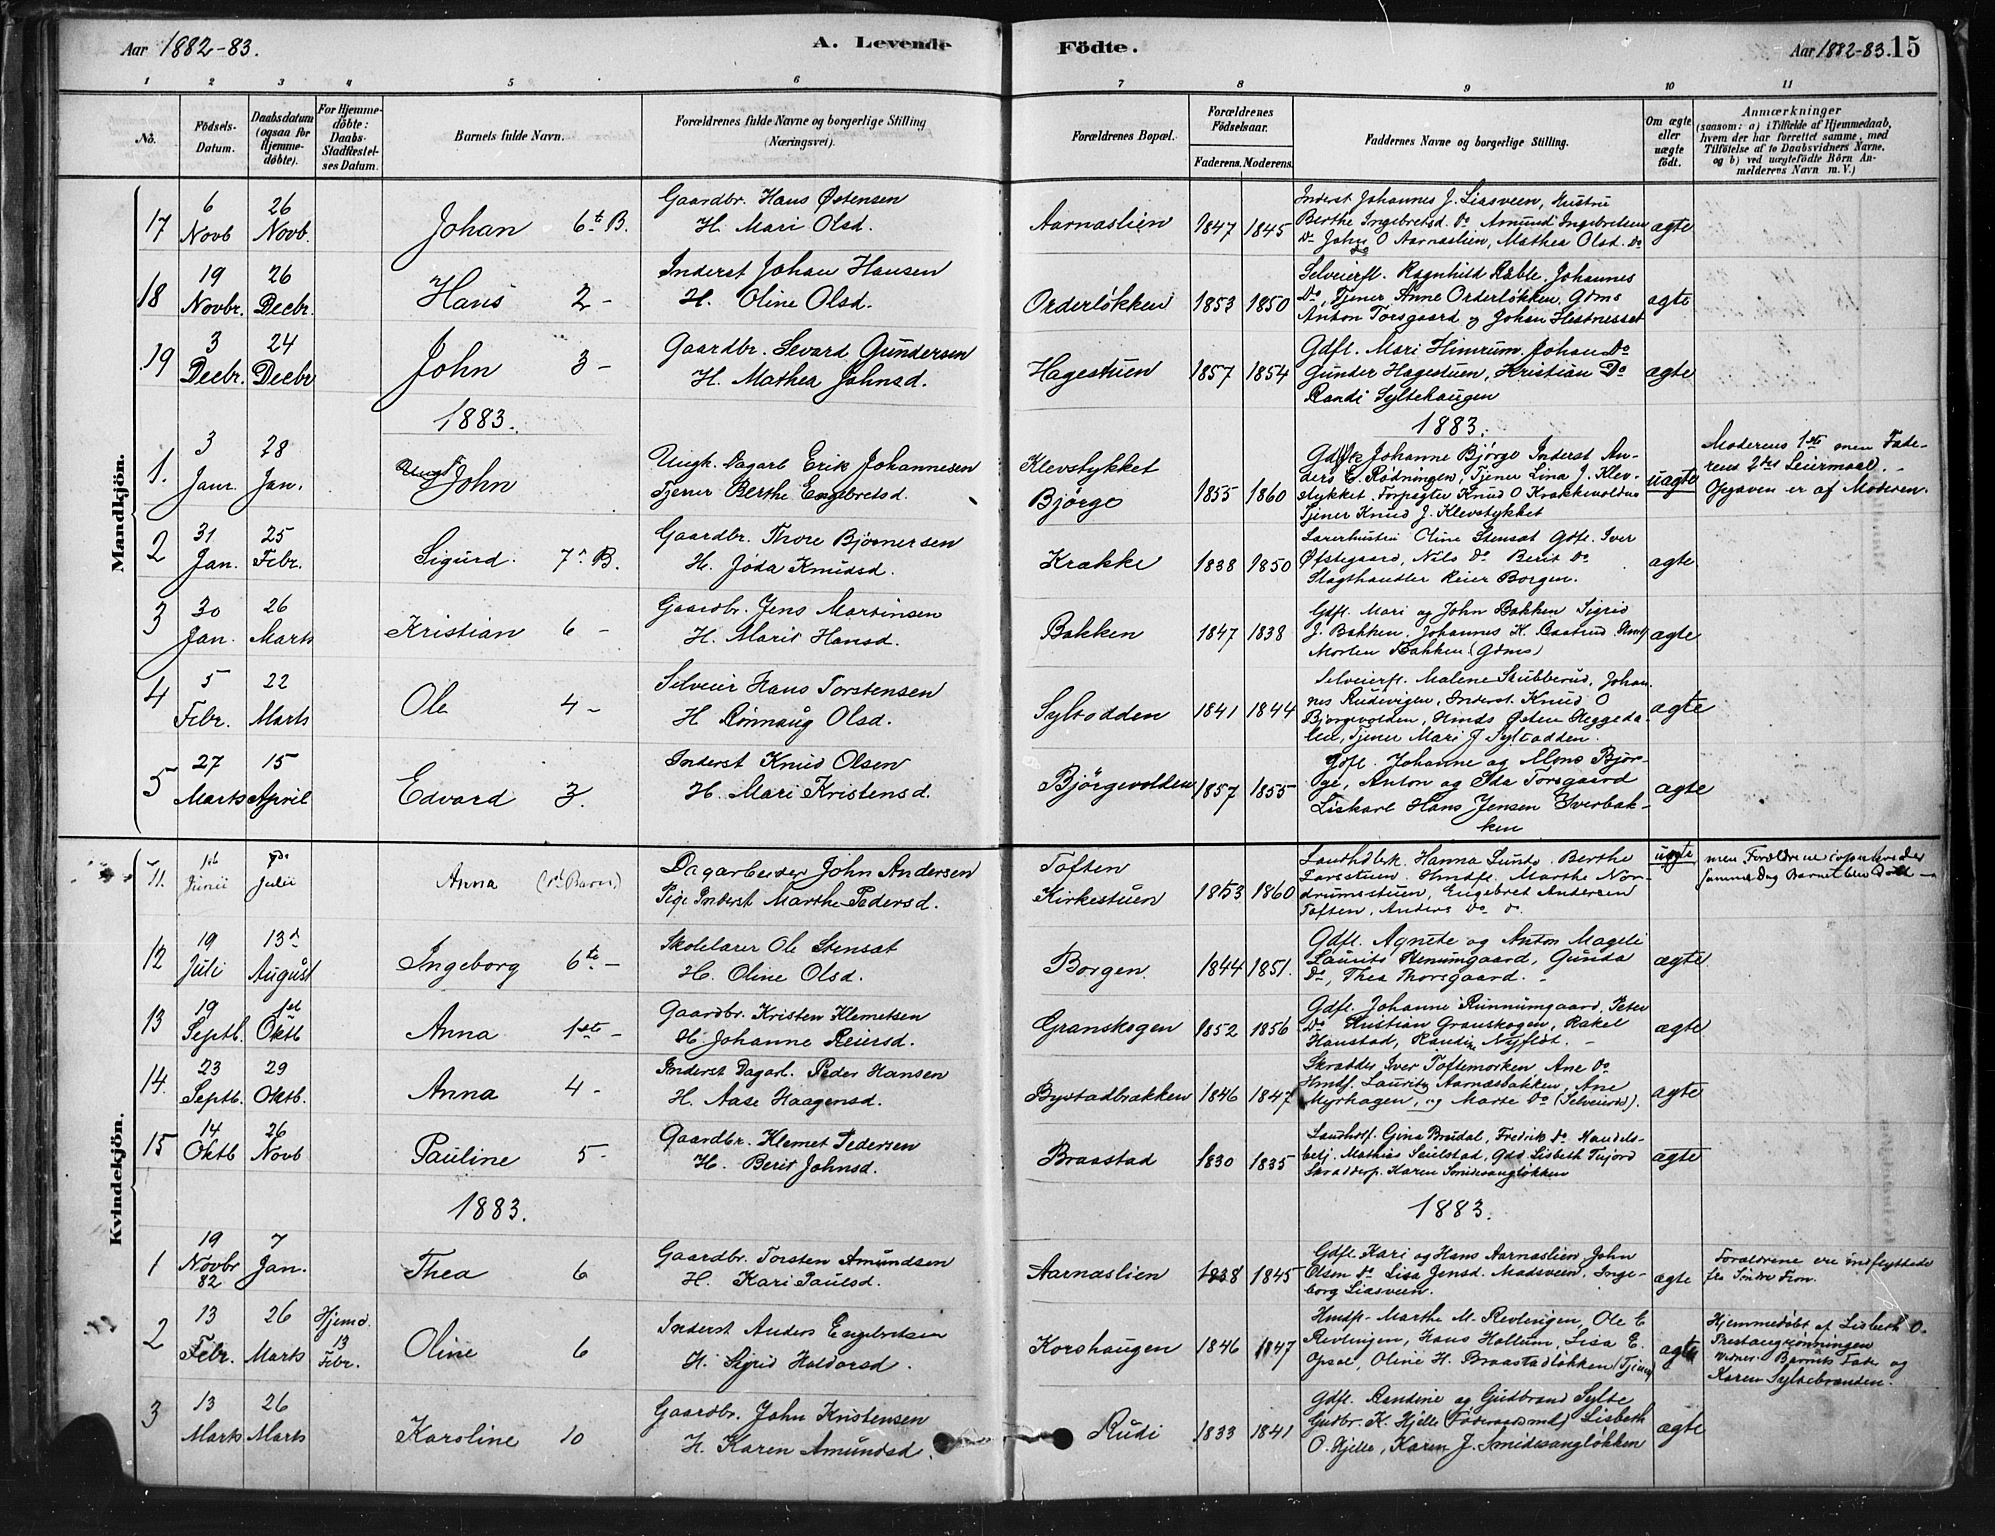 Aar 1882-83.
A. Levende
Födte.
Aar 1882-83.
15
1 2 3 4 5 6 7 8 9 10 11
No.
Födsels-Datum.
Daabsdatum (ogsaa for Hjemme-döbte).
For Hjemme-döbte: Daabs Stadfæstel-ses Datum.
Barnets fulde Navn.
Forældrenes fulde Navne og borgerlige Stilling (Næringsvei).
Forældrenes Bopæl.
Forældrenes Födselsaar.
Faderens. Moderens.
Faddernes Navne og borgerlige Stilling.
Om ægte eller uægte födt.
Anmærkninger
(saasom: a) i Tilfælde af Hjemmedaab,
hvem der har forrettet samme, med
Tilföielse af to Daabsvidners Navne.
og b) ved uægtefödte Börn An-
melderens Navn m. V.)
Mandkjön.
17
6 Novb
26 Novb.
Johan 6te B.
Gaardbr. Hans Østensen
H. Mari Olsd.
Aarnaslien
1847 1845
Inderst Johannes J. Liasveen, Hustru
Berthe Ingebretsd. Do Amund Ingebretsen
Do John O Aarnaslien, Mathea Olsd. Do
ægte
18
19 Novbr.
26 Decbr.
Hans 2 -
Inderst Johan Hansen
H. Oline Olsd.
Orderløkken
1853 1850
Selveierfl. Ragnhild Rable, Johannes
Do, Tjener Anne Orderløkken, Gdms
Anton Torsgaard og Johan Hestnesset
ægte
19
3 Decbr.
24 Decbr
John 3 -
Gaardbr. Sevard Gundersen
H. Mathea Johnsd.
Hagestuen
1857 1854
Gdfl. Mari Himrum. Johan Do
Gunder Hagestuen, Kristian Do
Randi Syltehaugen
ægte
1883.
1883.
1.
3 Janr.
28 Jan.
John
Ungk. Dagarb. Erik Johannesen
Tjener Berthe Engebretsd.
Klevstykket
Bjørge
1855 1860
Johanne Bjørge Inderst An-
ders E. Rødningen, Tjener Lina J. Klev-
stykket, Forpagter Knud O Krakkevolden
Tjener Knud J. Klevstykket
uægte
Moderens 1ste men Fade-
rens 2det Leiermaal. -
Opgaven er af Moderen.
2
31 Jan.
25 Febr.
Sigurd. 7de B.
Gaardbr. Thore Bjørnersen
H. Joda Knudsd.
Krakke
1838 1850
Lærerhustru Oline Stensæt Gdfl. Iver
Øfstegaard, Nils Do Berit Do
Slagthandler Reier Borgen.
ægte
3
30 Jan.
26 Marts
Kristian 6 -
Gaardbr. Jens Martinsen
H. Marit Hansd.
Bakken
1847 1838
Gdfl. Mari og John Bakken Sigrid
J. Bakken. Johannes K. Baatrud
Morten Bakken (Gdms)
ægte
4
5 Febr.
22 Marts
Ole 4 -
Selveier Hans Torstensen
H Rønnaug Olsd.
Syltodden
1841 1844
Selveierfl. Malene Stubberud, Johan
nes Rudvigen, Inderst Knud O
Bjørgevolden, Hmds Østen Heggeda
len, Tjener Mari J Syltodden.
ægte
5
27 Marts
15 April
Edvard 3.
Inderst Knud Olsen
H. Mari Kristensd.
Bjørgevolden
1857 1855
Gdfl. Johanne og Mons Bjør-
ge, Anton og Ida Torsgaard
Liskarl Hans Jensen Sverbak-
ken
ægte
Kvindekjön.
11.
Junii
Julii
Anna (1st Barn)
Dagarbeider John Andersen
Pige Inderst Marthe Pedersd.
Toften
Kirkestuen
1853 1860
Landhdlsk. Hanna Lunts. Berthe
Larsstuen. Hmdfl. Marthe Nor-
drumsstuen, Engebret Andersen
Toften, Anders Do
uægte
men Forældrene copulerede
samme Dag Barnet blev Døbt
12
19 Juli
13de August
Ingeborg 6te -
Skolelærer Ole Stensæt
H. Oline Olsd.
Borgen.
1844 1851.
Gdfl. Agnete og Anton Mageli
Laurits Rennumgaard, Gunda
Do, Thea Thorsgaard. -
ægte
13
19 Septb.
1st Oktb
Anna 1ste -
Gaardbr. Kristen Klemetsen
H. Johanne Reiersd.
Granskogen
1852 1856
Gdfl. Johanne Runnumgaard, Peter
Do Kristian Granskogen, Rakel
Haustad, Randine Nyfløt. -
ægte
14.
23 Septb.
29 Oktb.
Anna 4 -
Inderst Dagarb. Peder Hansen
H. Aase Haagensd.
Bystadbrakken
1846 1847
Skrædder Iver Toftemorken, Ane Do
Hmdf. Lauritz Aarnæsbakken, Ane
Myrhagen, og Marte Do (Selveierds).
ægte
15
14 Oktb
26 Novb
Pauline 5 -
Gaardbr. Klemet Pedersen
H. Berit Johnsd.
Braastad
1830 1835
Landhdl. Gina Brudal, Fredrik Do Handels-
betj. Mathias Seielstad, Gdd Lisbeth Tujord
Skrædderp. Karen Smidesangløkken
ægte
1883.
1883.
1
19 Novbr 82
7 Jan.
Thea 6
Gaardbr. Torsten Amundsen
H. Kari Paulsd.
Aarnaslien
1838 1845
Gdfl. Kari og Hans Aarnaslien, John
Olsen Do Lisa Jensd. Madsveen, Inge-
borg Liasveen.
ægte
Forældrene ere indflyttede
fra Søndre Fron.
2
13 Febr.
26 Marts
Hjemd. 13 Febr.
Oline 6
Inderst Anders Engebretsen
H. Sigrid Haldorsd.
Korshaugen
1846 1847
Hmdfl. Marthe M. Revlingen, Ole E
Revlingen, Hans Hallum, Lisa E.
Opsal, Oline H. Braastadløkken (Tjener)
ægte
Hjemmedøbt af Lisbeth O.
Prestangrønningen
Vidner Barnets Fader og
Karen Syltebranden.
3
13 Marts
26 Marts
Karoline 10
Gaardbr. John Kristensen
H. Karen Amundsd.
Rudi
1833 1841
Gdfl. Randine og Gudbrand Sylte
Gudbr. K. Hjelle (Føderaadsmd) Lisbeth
O. Hjelle, Karen J. Smidesangløkken
ægte